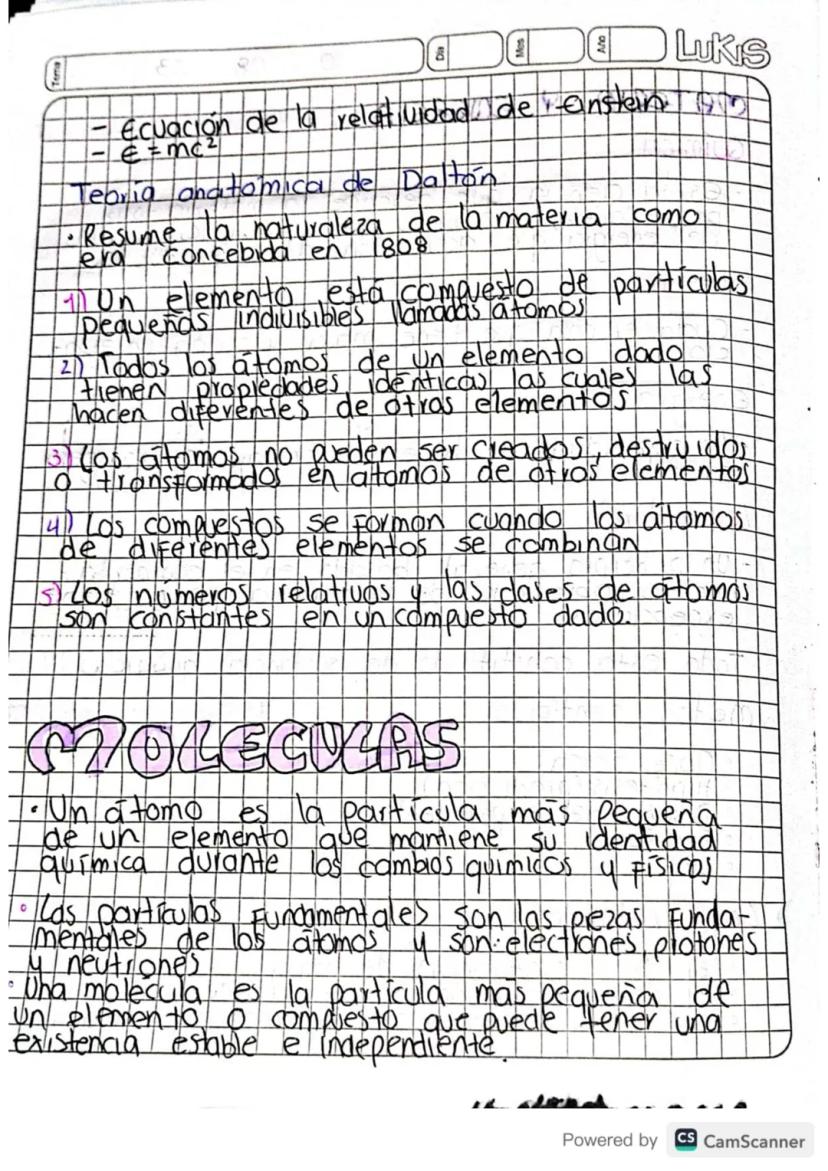 Tema
Dia
Mes
Año
LUKIS
- Ecuación de la relatividad de einstein
- E=mc²
Teoria anatomica de Dalton
· Resume la naturaleza de la materia como
era concebida en 1808
1) Un elemento está compuesto de partículas
pequeñas indivisibles llamadas átomos
2) Todos los átomos de un elemento dado
tienen propiedades idénticas, las cuales las
hacen diferentes de otros elementos
3) Los átomos no pueden ser creados, destruidos
o transformados en atomos de otros elementos
4) Los compuestos se forman cuando los átomos
de diferentes elementos se combinan
5) Los números relativos y las clases de átomos
son constantes en un compuesto dado.
MOLECULAS
· Un átomo es la partícula más pequeña
de un elemento que mantiene su identidad
química durante los cambios quimicos y Físicos
· Las partículas Fundamentales son las piezas Funda-
mentales de los átomos y son: electrones, protones
y neutrones
· Una molécula es la partícula más pequeña de
un elemento o compuesto que puede tener una
existencia estable e independiente.
Powered by CS CamScanner